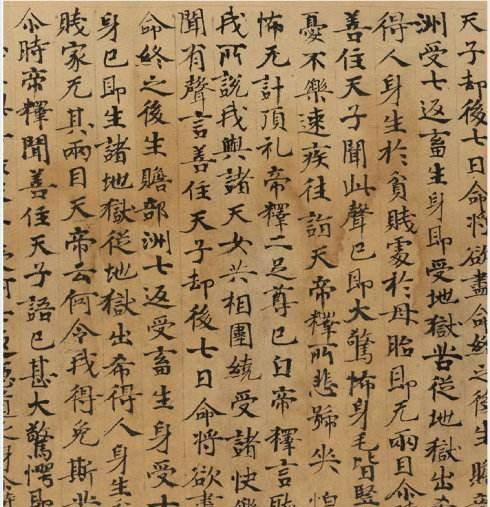 天子却後七日命將欲盡命終之後生
洲受七返畜生身即受地獄苦從地獄出希
得人身生於貧賤處於母胎即无兩目尒時
善住天子聞此聲已即大驚怖身毛皆竪
憂不樂速疾往詣天帝釋所悲號哭惶
怖无計頂礼帝釋二足尊已白帝釋言聽
我所說我與諸天女共相圍繞受諸快樂
聞有聲言善住天子却後七日命將欲盡
命終之後生贍部洲七返受畜生身受七
身已即生諸地獄從地獄出希得人身生
賤家无其兩目天帝云何令我得免斯苦
尒時帝釋聞善住天子語已甚大驚愕即